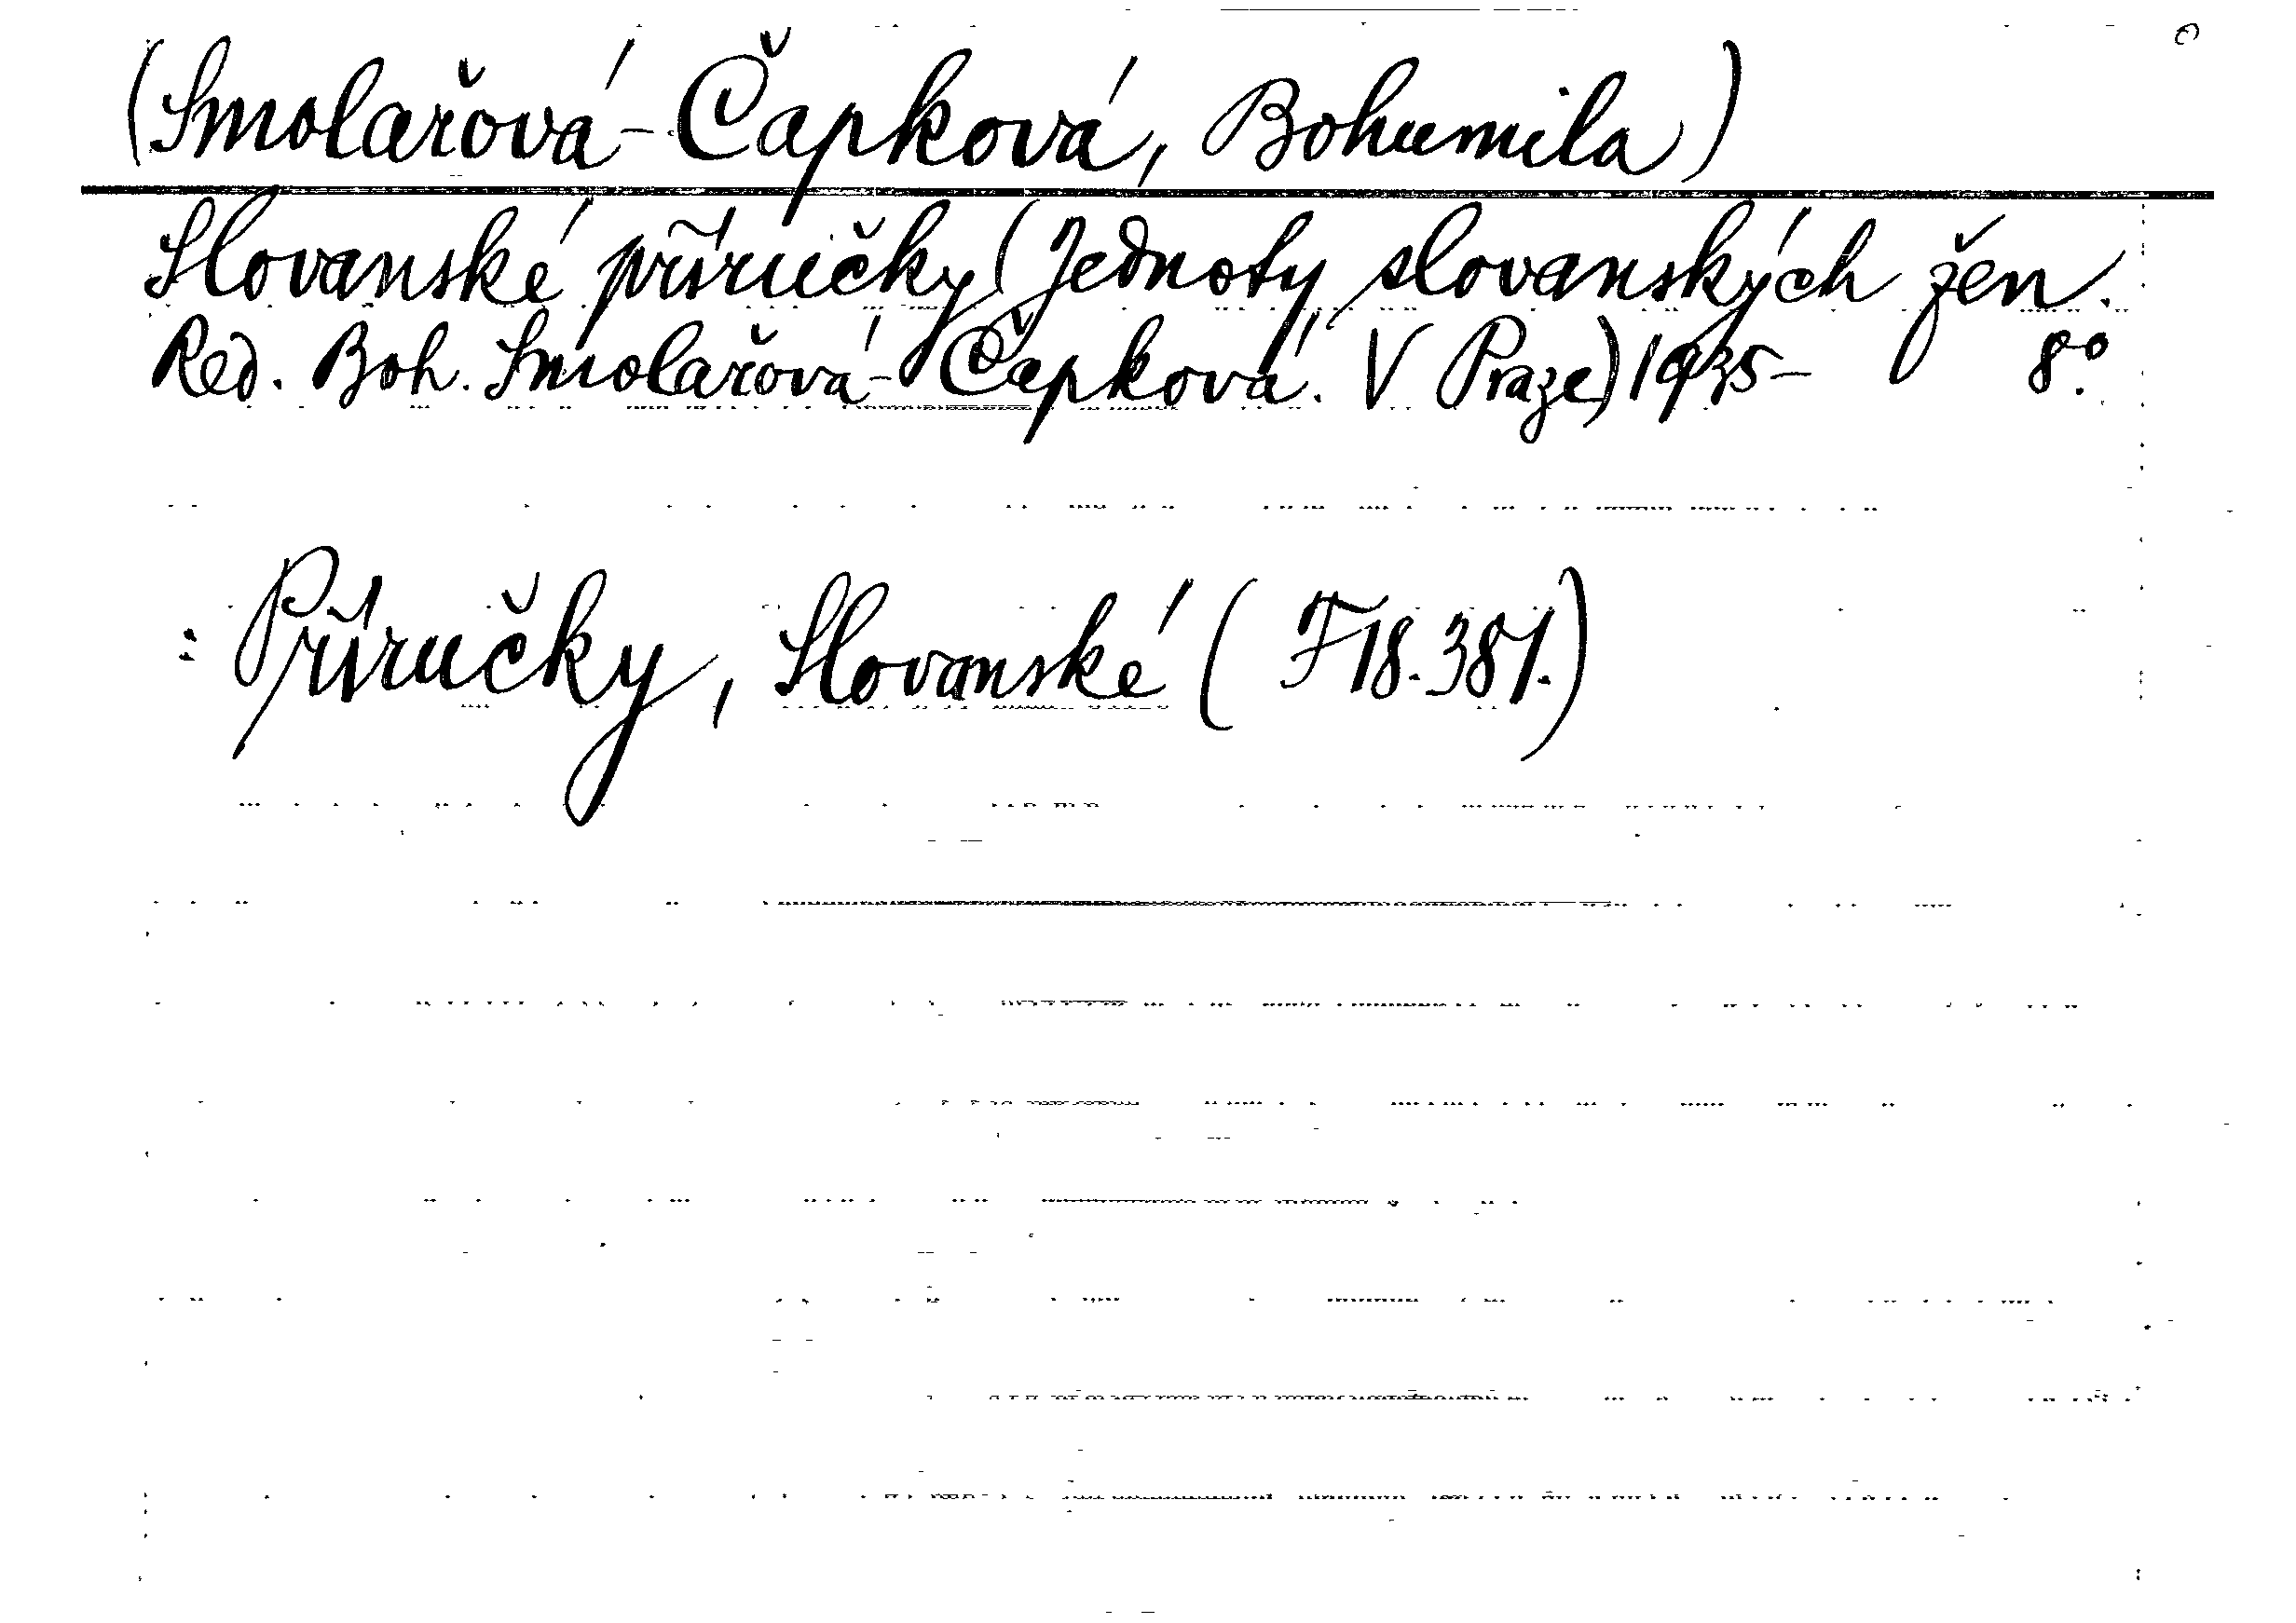 (Smolařová-Čapková, Bohumila)
Slovanské příručky (Jednoty slovanských žen.
Red. Boh. Smolařová-Čapková. V Praze) 1935- 8°.
: Příručky, Slovanské (F18.381.)